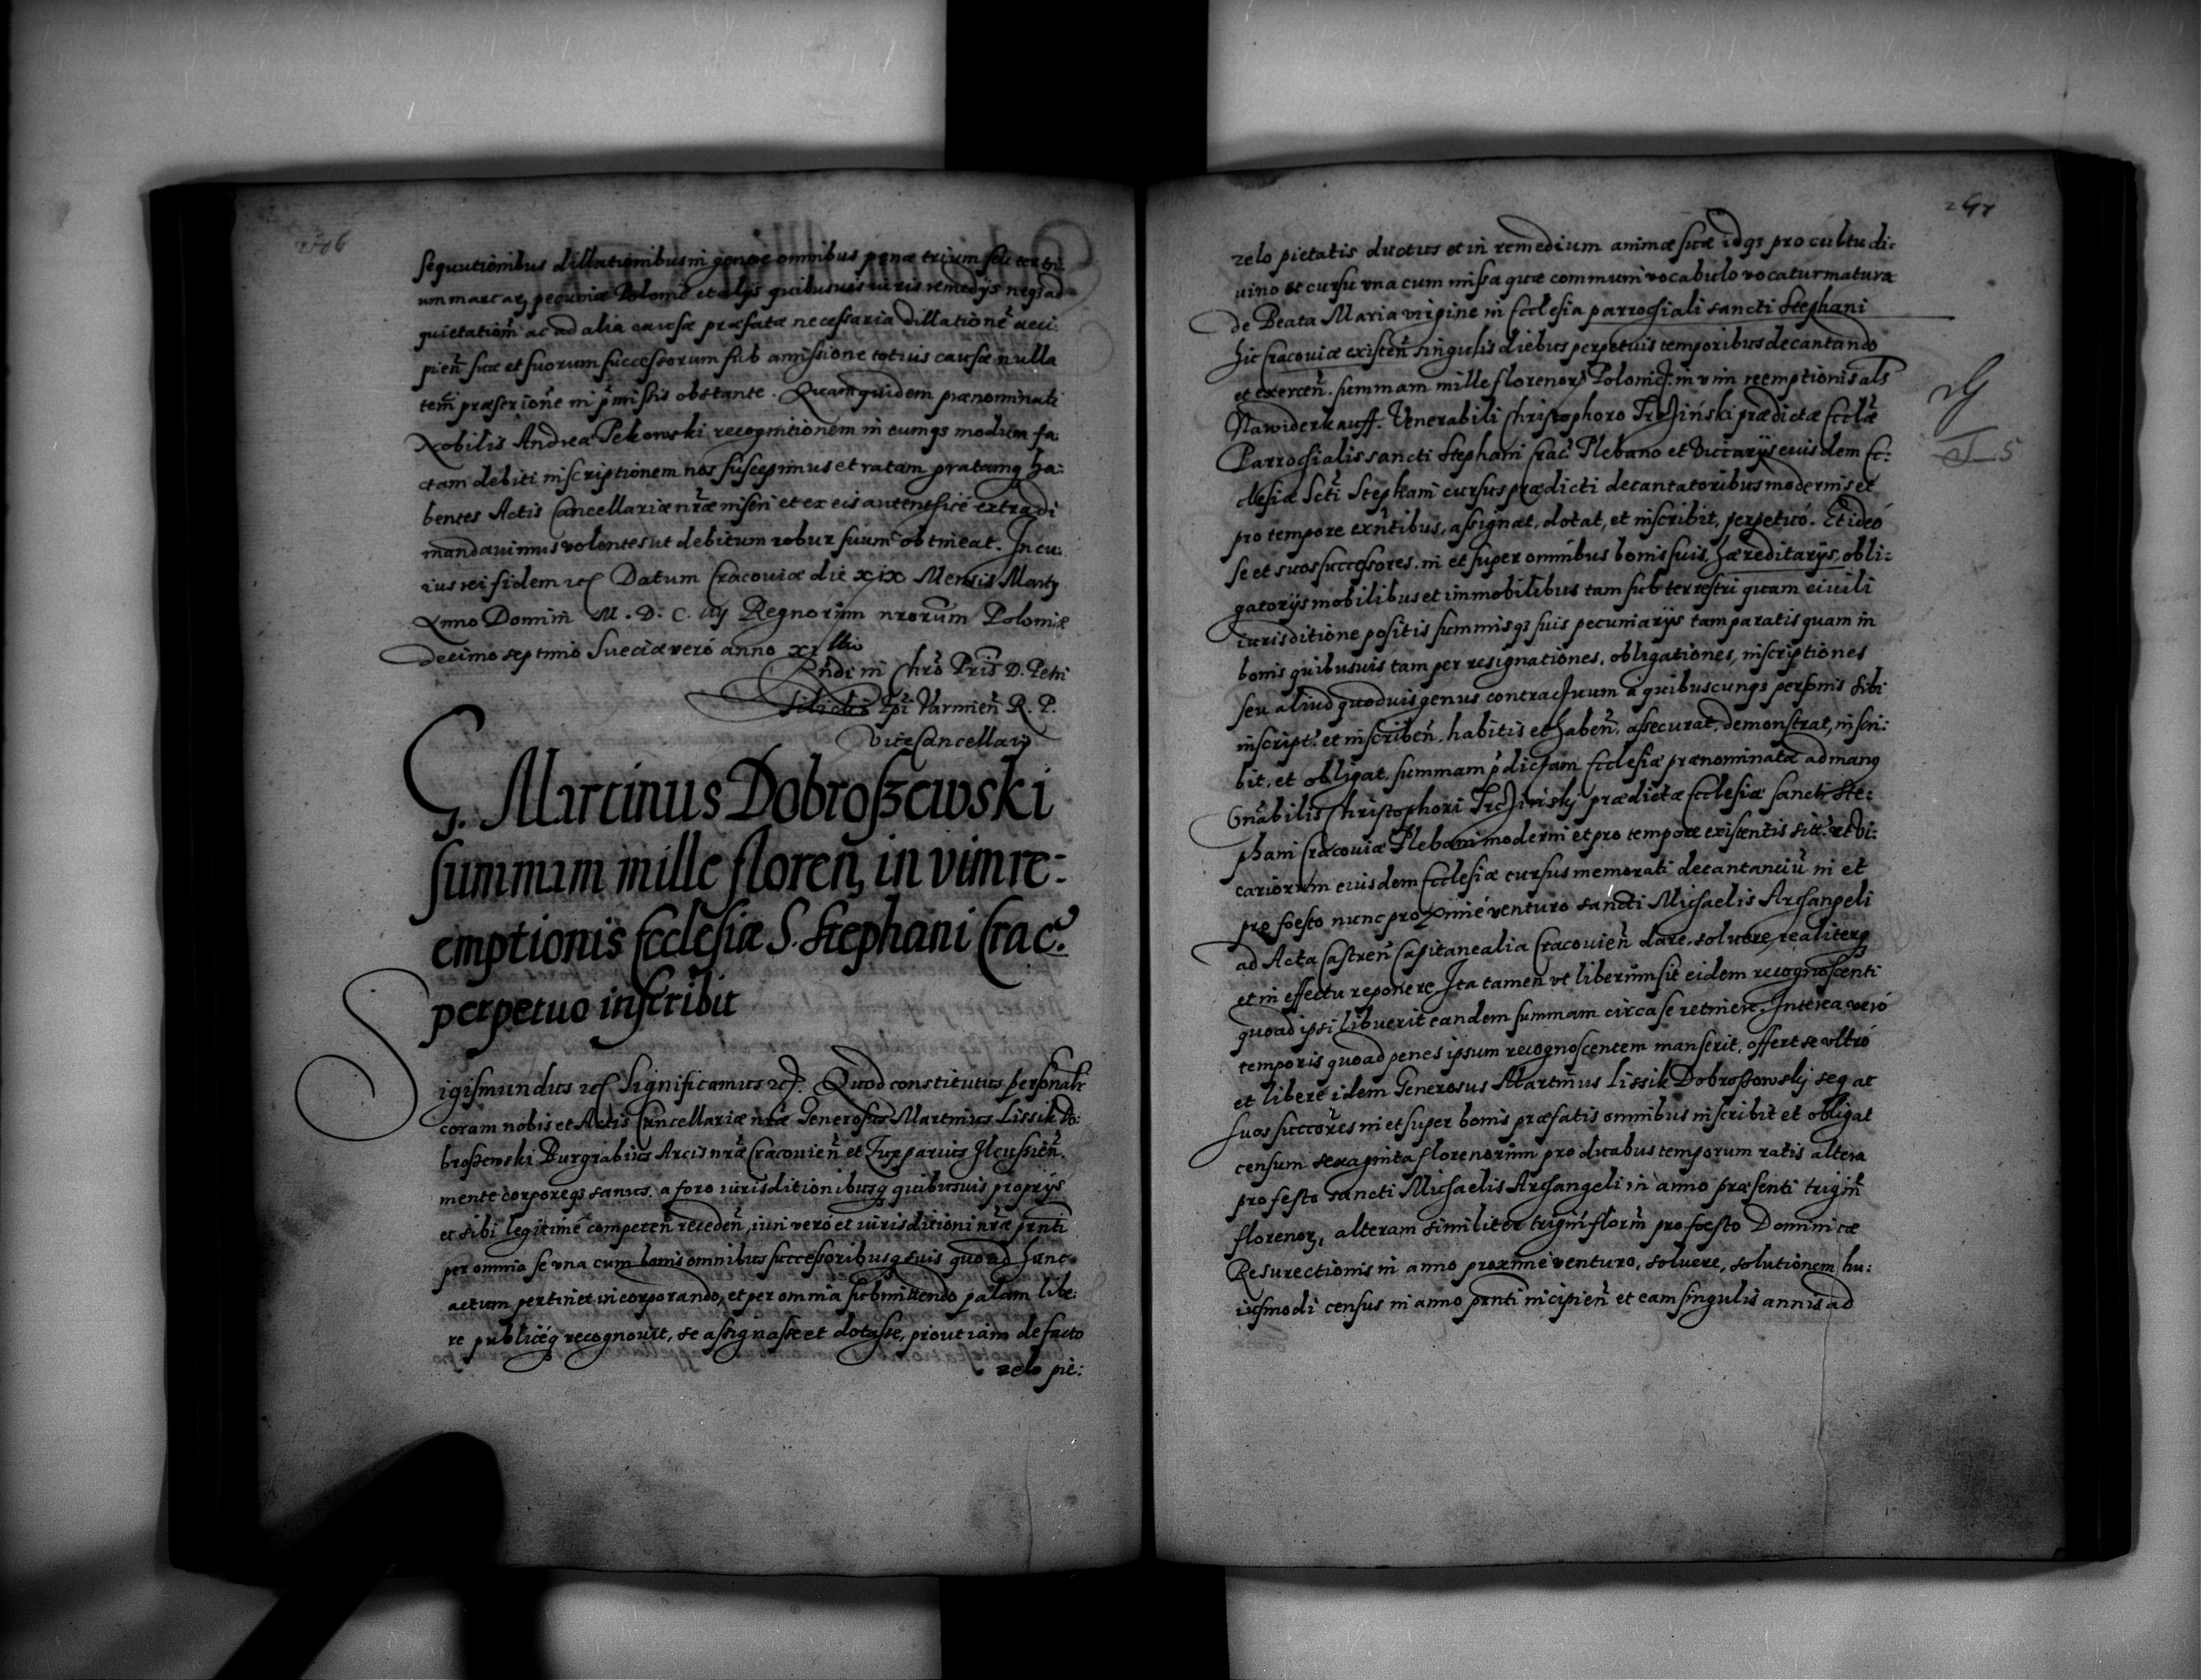 sequutionibus dillationibus in genere omnibus penæ trium seu
um marcarq pecuniæ Polonić et alijs quibusuis iuris remedijs neqз ad
quietationẽ ac ad alia causæ præfatæ necessaria dillationẽ acci:
pień suæ et suorum successorum sub amissione totius causæ nulla
tem̃ præscrione in p̃missis obstante. Quamquidem prænominati
Nobilis Andreæ Pekowski recognitionem in eumqз modum fa:
ctam debiti inscriptionem nos suscepimus et ratam gratamq ha:
bentes Actis Cancellariæ nr̃æ inseri et ex eis autenticè extradi
mandauimus volentes ut debitum robur suum obtineat. In cu:
ius rei fidem etc Datum Cracouiæ die xix Mensis Martij
Anno Domini M. D. C. iiij Regnorum nrorum Poloniæ
decimo septimo Sueciæ verò anno xi
Rñdi in Chrõ Pris D. Petri
Tilicki Epĩ Varmień R. P.
ViceCancellarij
G. Martinus Dobroszewski
summam mille floreñ, in vim re:
emptionis Ecclesiæ S. Stephani Crac.
perpetuo inscribit
Sigismundus etc Significamus etc. Quod constitutus personalr̃
coram nobis et Actis Cancellariæ nr̃æ Generosus Martinus Lissik Do:
broszewski Burgrabius Arcis nr̃æ Cracouień et Zupparius Ilcussień.
mente corporeqз sanus, a foro iurisditionibusq quibusuis proprijs
et sibi legitimè competeñ recedeñ, iuri verò et iurisditioni nr̃æ pr̃nti
per omnia se vna cum bonis omnibus successoribusq suis quoad hunc
actum pertinet incorporando, et per omnia submittendo palam libe:
re publicèq recognouit, se assignasse et dotasse, prout iam de facto
zelo pie:
zelo pietatis ductus et in remedium animæ suæ idqз pro cultu di:
uino et cursu vna cum missa quæ communi vocabulo vocatur matura
de Beata Maria virgine in Ecclesia parrochiali sancti Stephani
hic Cracouiæ existeñ singulis diebus perpetuis temporibus decantando
et exerceñ. summam mille florenorq Polonic. in vim reemptionis als
Nawiderkauff. Venerabili Christophoro Trzciński prædictæ Ecclæ
Parrochialis sancti Stephani Crac. Plebano et Viccarijs eiusdem Ec:
clesiæ Scti Stephani cursus prædicti decantatoribus modernis et
pro tempore exñtibus, assignat, dotat, et inscribit, perpetuò. Et ideò
se et suos successores. in et super omnibus bonis suis, hæreditarijs, obli:
gatorijs mobilibus et immobilibus tam sub terrestri quam ciuili
iurisditione positis summisqз suis pecuniarijs tam paratis quam in
bonis quibusuis tam per resignationes, obligationes, inscriptiones
seu aliud quoduis genus contractuum a quibuscunqз personis sibi
inscript. et inscribeñ. habitis et habeñ. assecurat, demonstrat, inscri:
bit, et obligat. summam p̃dictam Ecclesiæ prænominatæ ad manq
Vñabilis Christophori Trzcinskj prædictæ Ecclesiæ sancti Ste:
phani Cracouiæ Plebani moderni et pro tempore existentis sitt. et Vi:
cariorum eiusdem Ecclesiæ cursus memorati decantanciũ in et
pro foesto nunc proximè venturo sancti Michaelis Archangeli
ad Acta Castreñ Capitanealia Cracouień dare, soluere realiterq
et in effectu reponere Ita tamen vt liberum sit eidem recognoscenti
quoad ipsi libuerit eandem summam circa se retinere. Interea verò
temporis quoad penes ipsum recognoscentem manserit, offert se vltrò
et liberè idem Generosus Martinus Lissik Dobroszowskj seq ac
suos succc̃ores in et super bonis præfatis omnibus inscribit et obligat
censum sexaginta florenorum pro duabus temporum ratis altera
pro festo sancti Michaelis Archangeli in anno præsenti trigiñ
florenoq, alteram similiter trigiñ florñ pro foesto Dominicæ
Resurectionis in anno proximè venturo, soluere, solutionem hu:
iusmodi census in anno pr̃nti incipieñ et eam singulis annis ad